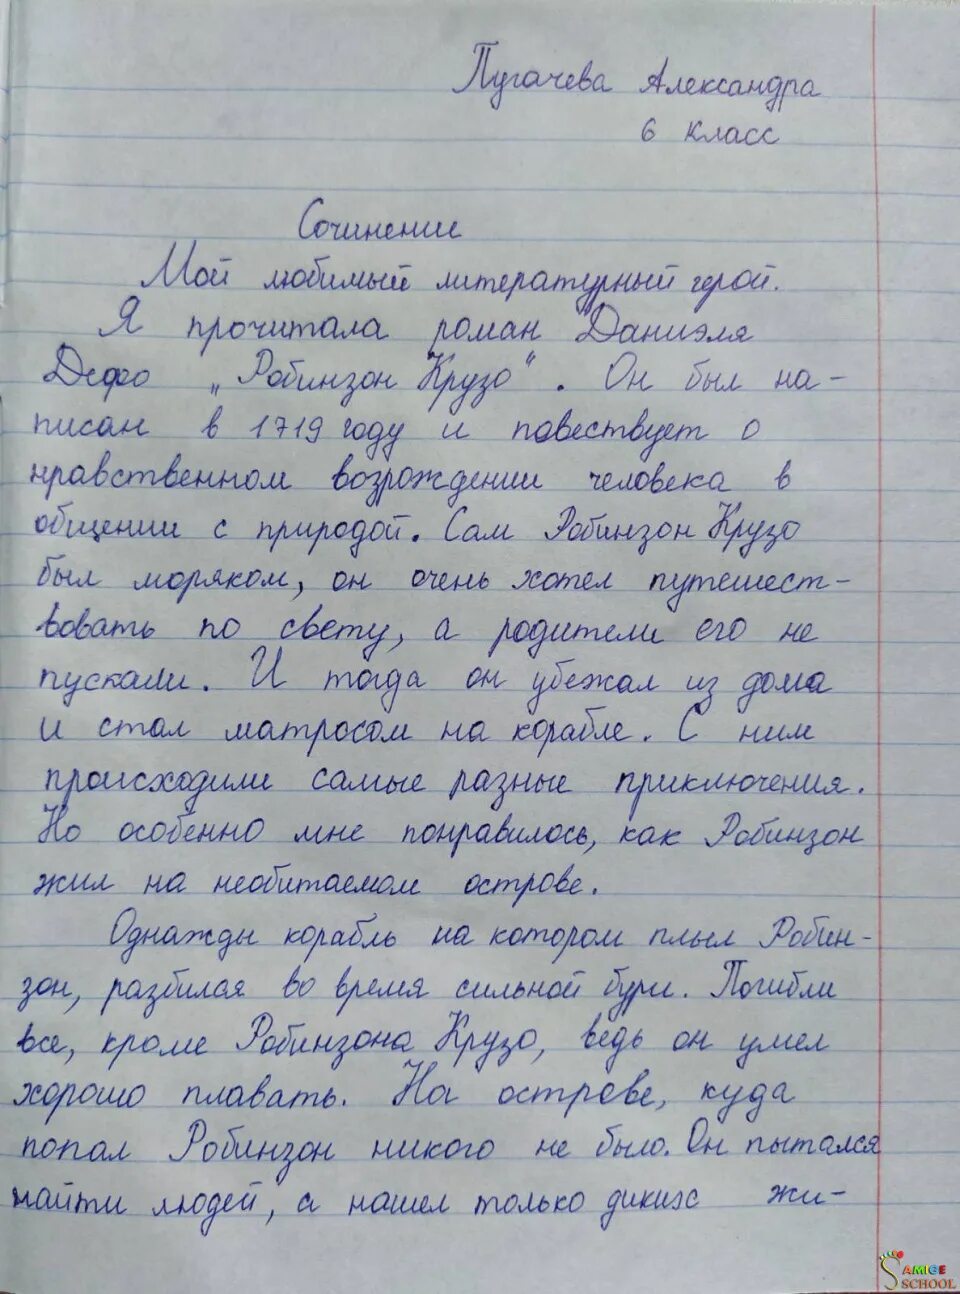 Пугачева Александра
6 класс
Сочинение
Мой любимый литературный герой.
Я прочитала роман Даниэля
Дефо „Робинзон Крузо". Он был на-
писан в 1719 году и повествует о
нравственном возрождении человека в
общении с природой. Сам Робинзон Крузо
был моряком, он очень хотел путешест-
вовать по свету, а родители его не
пускали. И тогда он убежал из дома
и стал матросом на корабле. С ним
происходили самые разные приключения.
Но особенно мне понравилось, как Робинзон
жил на необитаемом острове.
Однажды корабль на котором плыл Робин-
зон, разбился во время сильной бури. Погибли
все, кроме Робинзона Крузо, ведь он умел
хорошо плавать. На острове, куда
попал Робинзон никого не было. Он пытался
найти людей, а нашел только диких жи-
AMIGE
SCHOOL